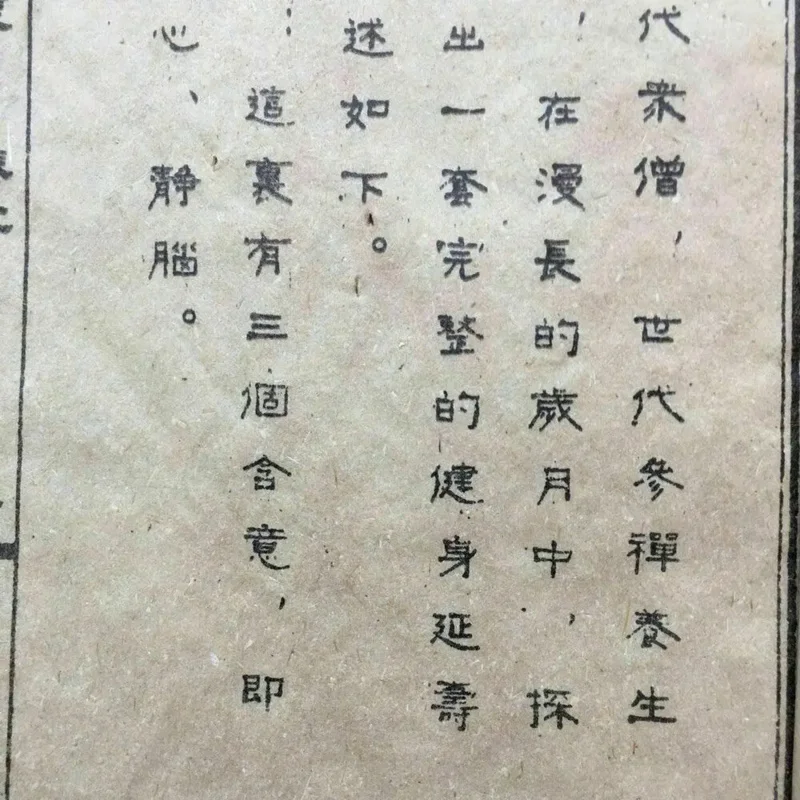 代衆僧，世代參禪養生
，在漫長的歲月中，探
出一套完整的健身延壽
述如下。
：這裏有三個含意，即
心、靜腦。